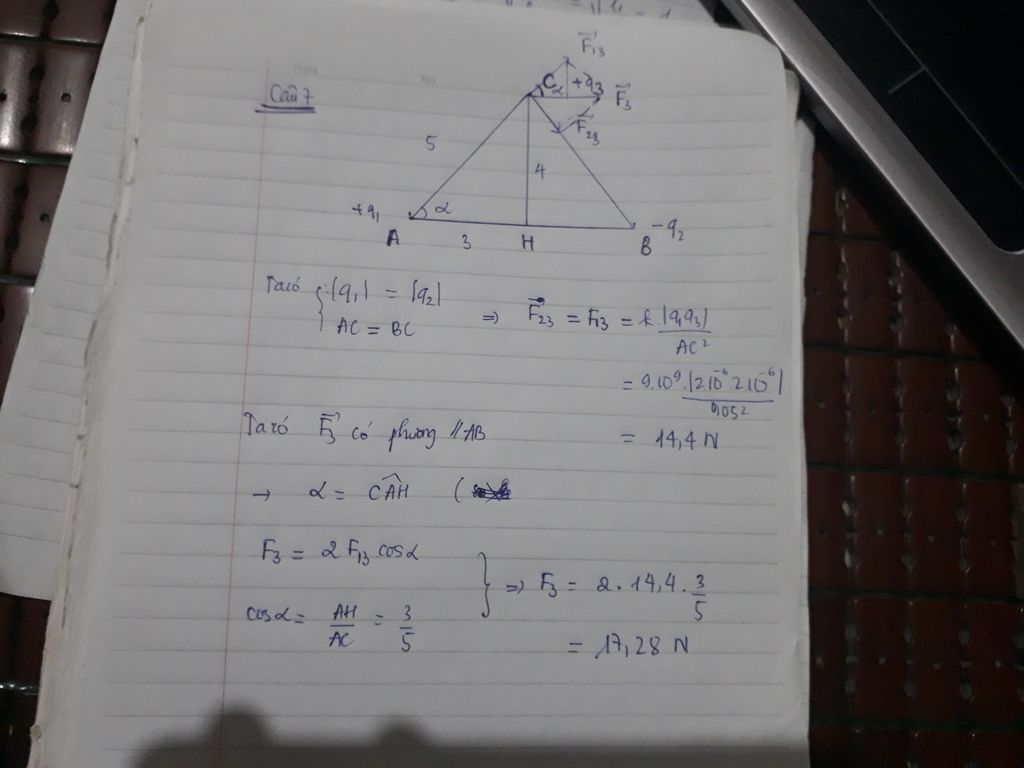 Câu 7
F⃗13
C α +q3 F⃗3
F⃗23
5
4
+q1 α
A 3 H B -q2
Ta có { |q1| = |q2|
AC = BC
⇒ F⃗23 = F13 = k.|q1q3|/AC²
= 9.10⁹.|2.10⁻⁶.2.10⁻⁶|/0,05²
= 14,4 N
Ta có F⃗3 có phương // AB
→ α = CÂH (
F3 = 2 F13 cosα
cosα = AH/AC = 3/5
} ⇒ F3 = 2 . 14,4 . 3/5
= 17,28 N